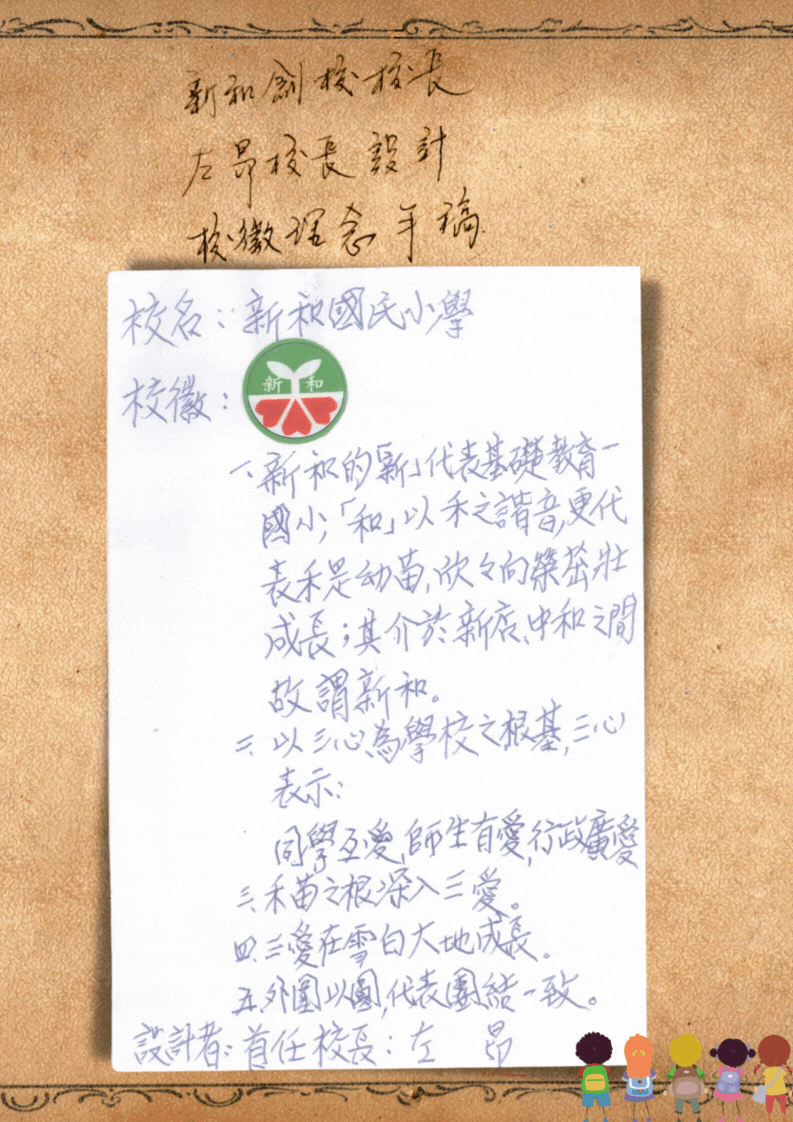 新和創校校長
左昂校長設計
校徽理念手稿
校名：新和國民小學
校徽：
新 和
一、新和的「新」代表基礎教育一
國小,「和」以禾之諧音,更代
表禾是幼苗,欣々向榮茁壯
成長；其介於新店、中和之間
故謂新和。
二、以三心為學校之根基,三心
表示：
同學互愛,師生有愛,行政廣愛
三、禾苗之根深入三愛。
四、三愛在雪白大地成長。
五、外圍以圓,代表團結一致。
設計者：首任校長：左 昂